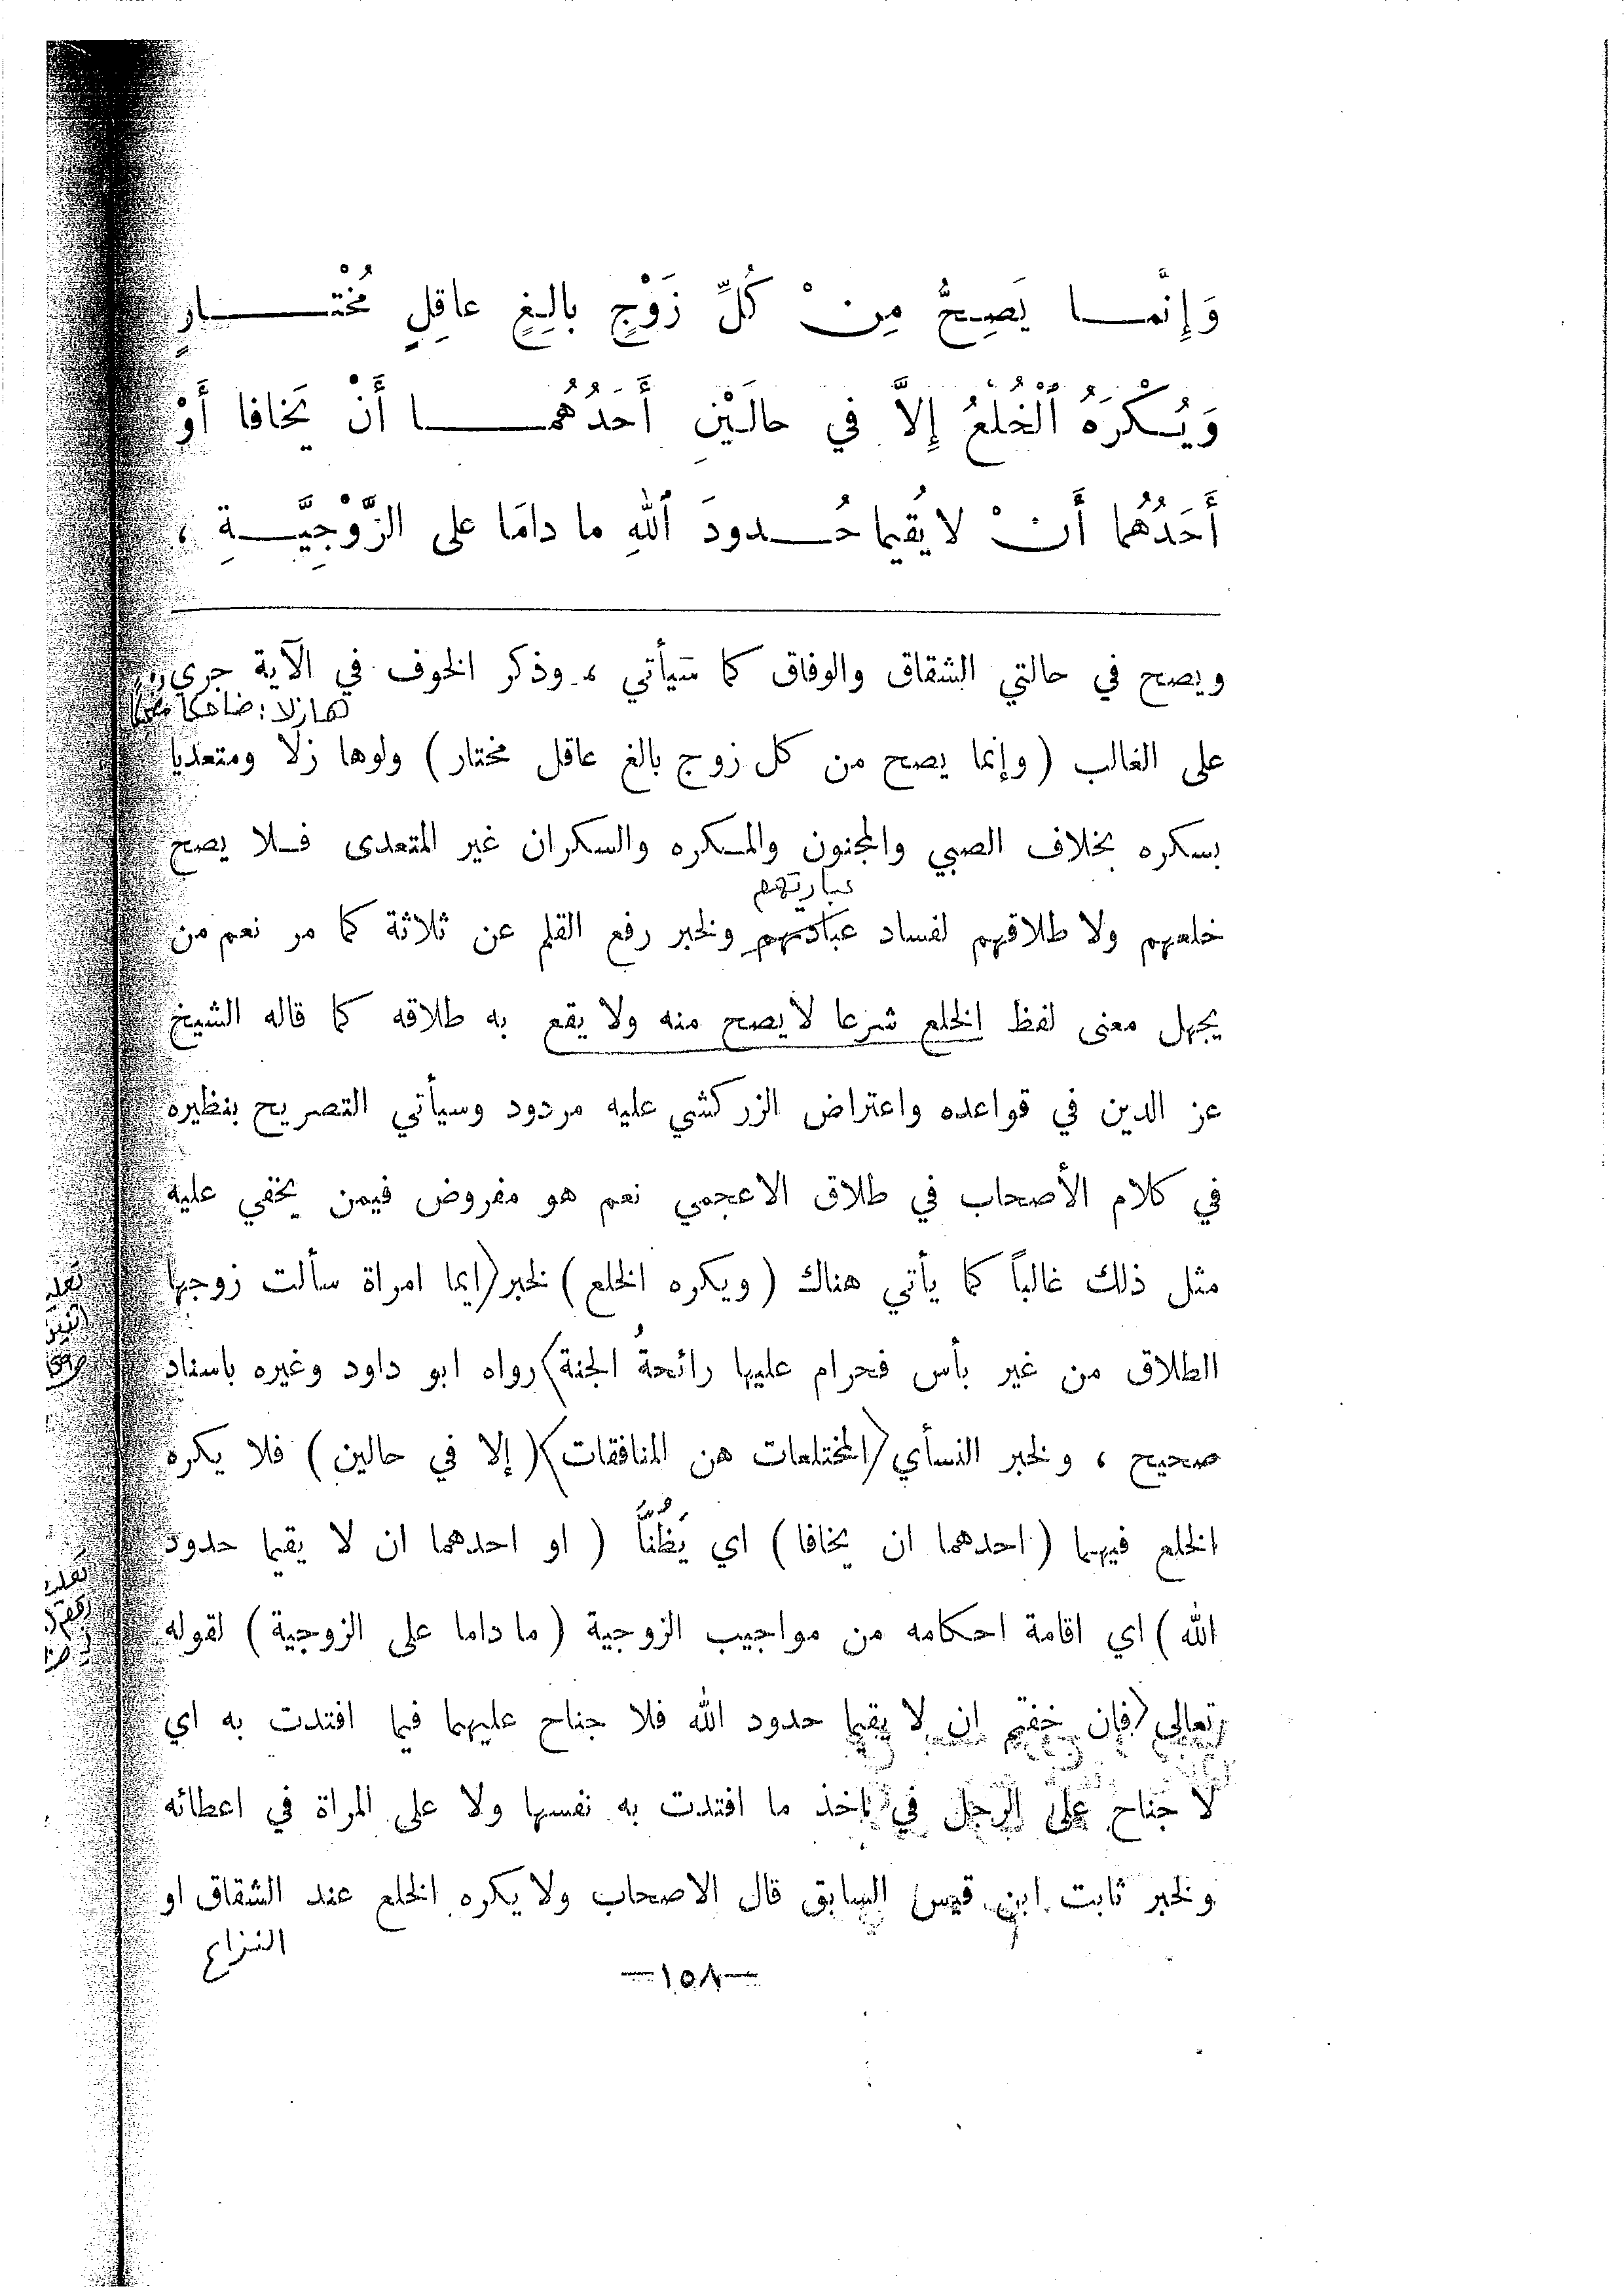 وَإِنَّمـــا يَصِـحُّ مِنْ كُلِّ زَوْجٍ بالِـغٍ عاقِلٍ مُخْتـــــــارٍ
وَيُـكْرَهُ ٱلْخُلْعُ إِلاَّ في حالَـيْنِ أَحَدُهُمـــــــا أَنْ يَخافا أَوْ
أَحَدُهُما أَنْ لايُقيما حُـــدودَ ٱللهِ ما دامَا على الزَّوْجِيَّـــةِ ،
ويصح في حالتي الشقاق والوفاق كما سيأتي ، وذكر الخوف في الآية جري
هازلا : ضاحكا
على الغالب ( وإنما يصح من كل زوج بالغ عاقل مختار ) ولوها زلا ومتعديا
بسكره بخلاف الصبي والمجنون والمـكره والسكران غير المتعدى فـلا يصح
عبارتهم
خلعهم ولا طلاقهم لفساد عبادتهم ولخبر رفع القلم عن ثلاثة كما مر نعم من
يجهل معنى لفظ الخلع شرعا لايصح منه ولا يقع به طلاقه كما قاله الشيخ
عز الدين في قواعده واعتراض الزركشي عليه مردود وسيأتي التصريح بنظيره
في كلام الأصحاب في طلاق الاعجمي نعم هو مفروض فيمن يخفي عليه
مثل ذلك غالباً كما يأتي هناك ( ويكره الخلع ) لخبر (ايما امراة سألت زوجها
الطلاق من غير بأس فحرام عليها رائحةُ الجنة) رواه ابو داود وغيره باسناد
صحيح ، ولخبر النسأي (المختلعات هن المنافقات) ( إلا في حالين ) فلا يكره
الخلع فيهما ( احدهما ان يخافا ) اي يَظُنّاً ( او احدهما ان لا يقيما حدود
الله ) اي اقامة احكامه من مواجيب الزوجية ( ما داما على الزوجية ) لقوله
تعالى (فإن خفتم ان لا يقيما حدود الله فلا جناح عليهما فيما افتدت به اي
لا جناح على الرجل في اخذ ما افتدت به نفسها ولا على المراة في اعطائه
ولخبر ثابت ابن قيس السابق قال الاصحاب ولا يكره الخلع عند الشقاق او
النزاع
—١٥٨—